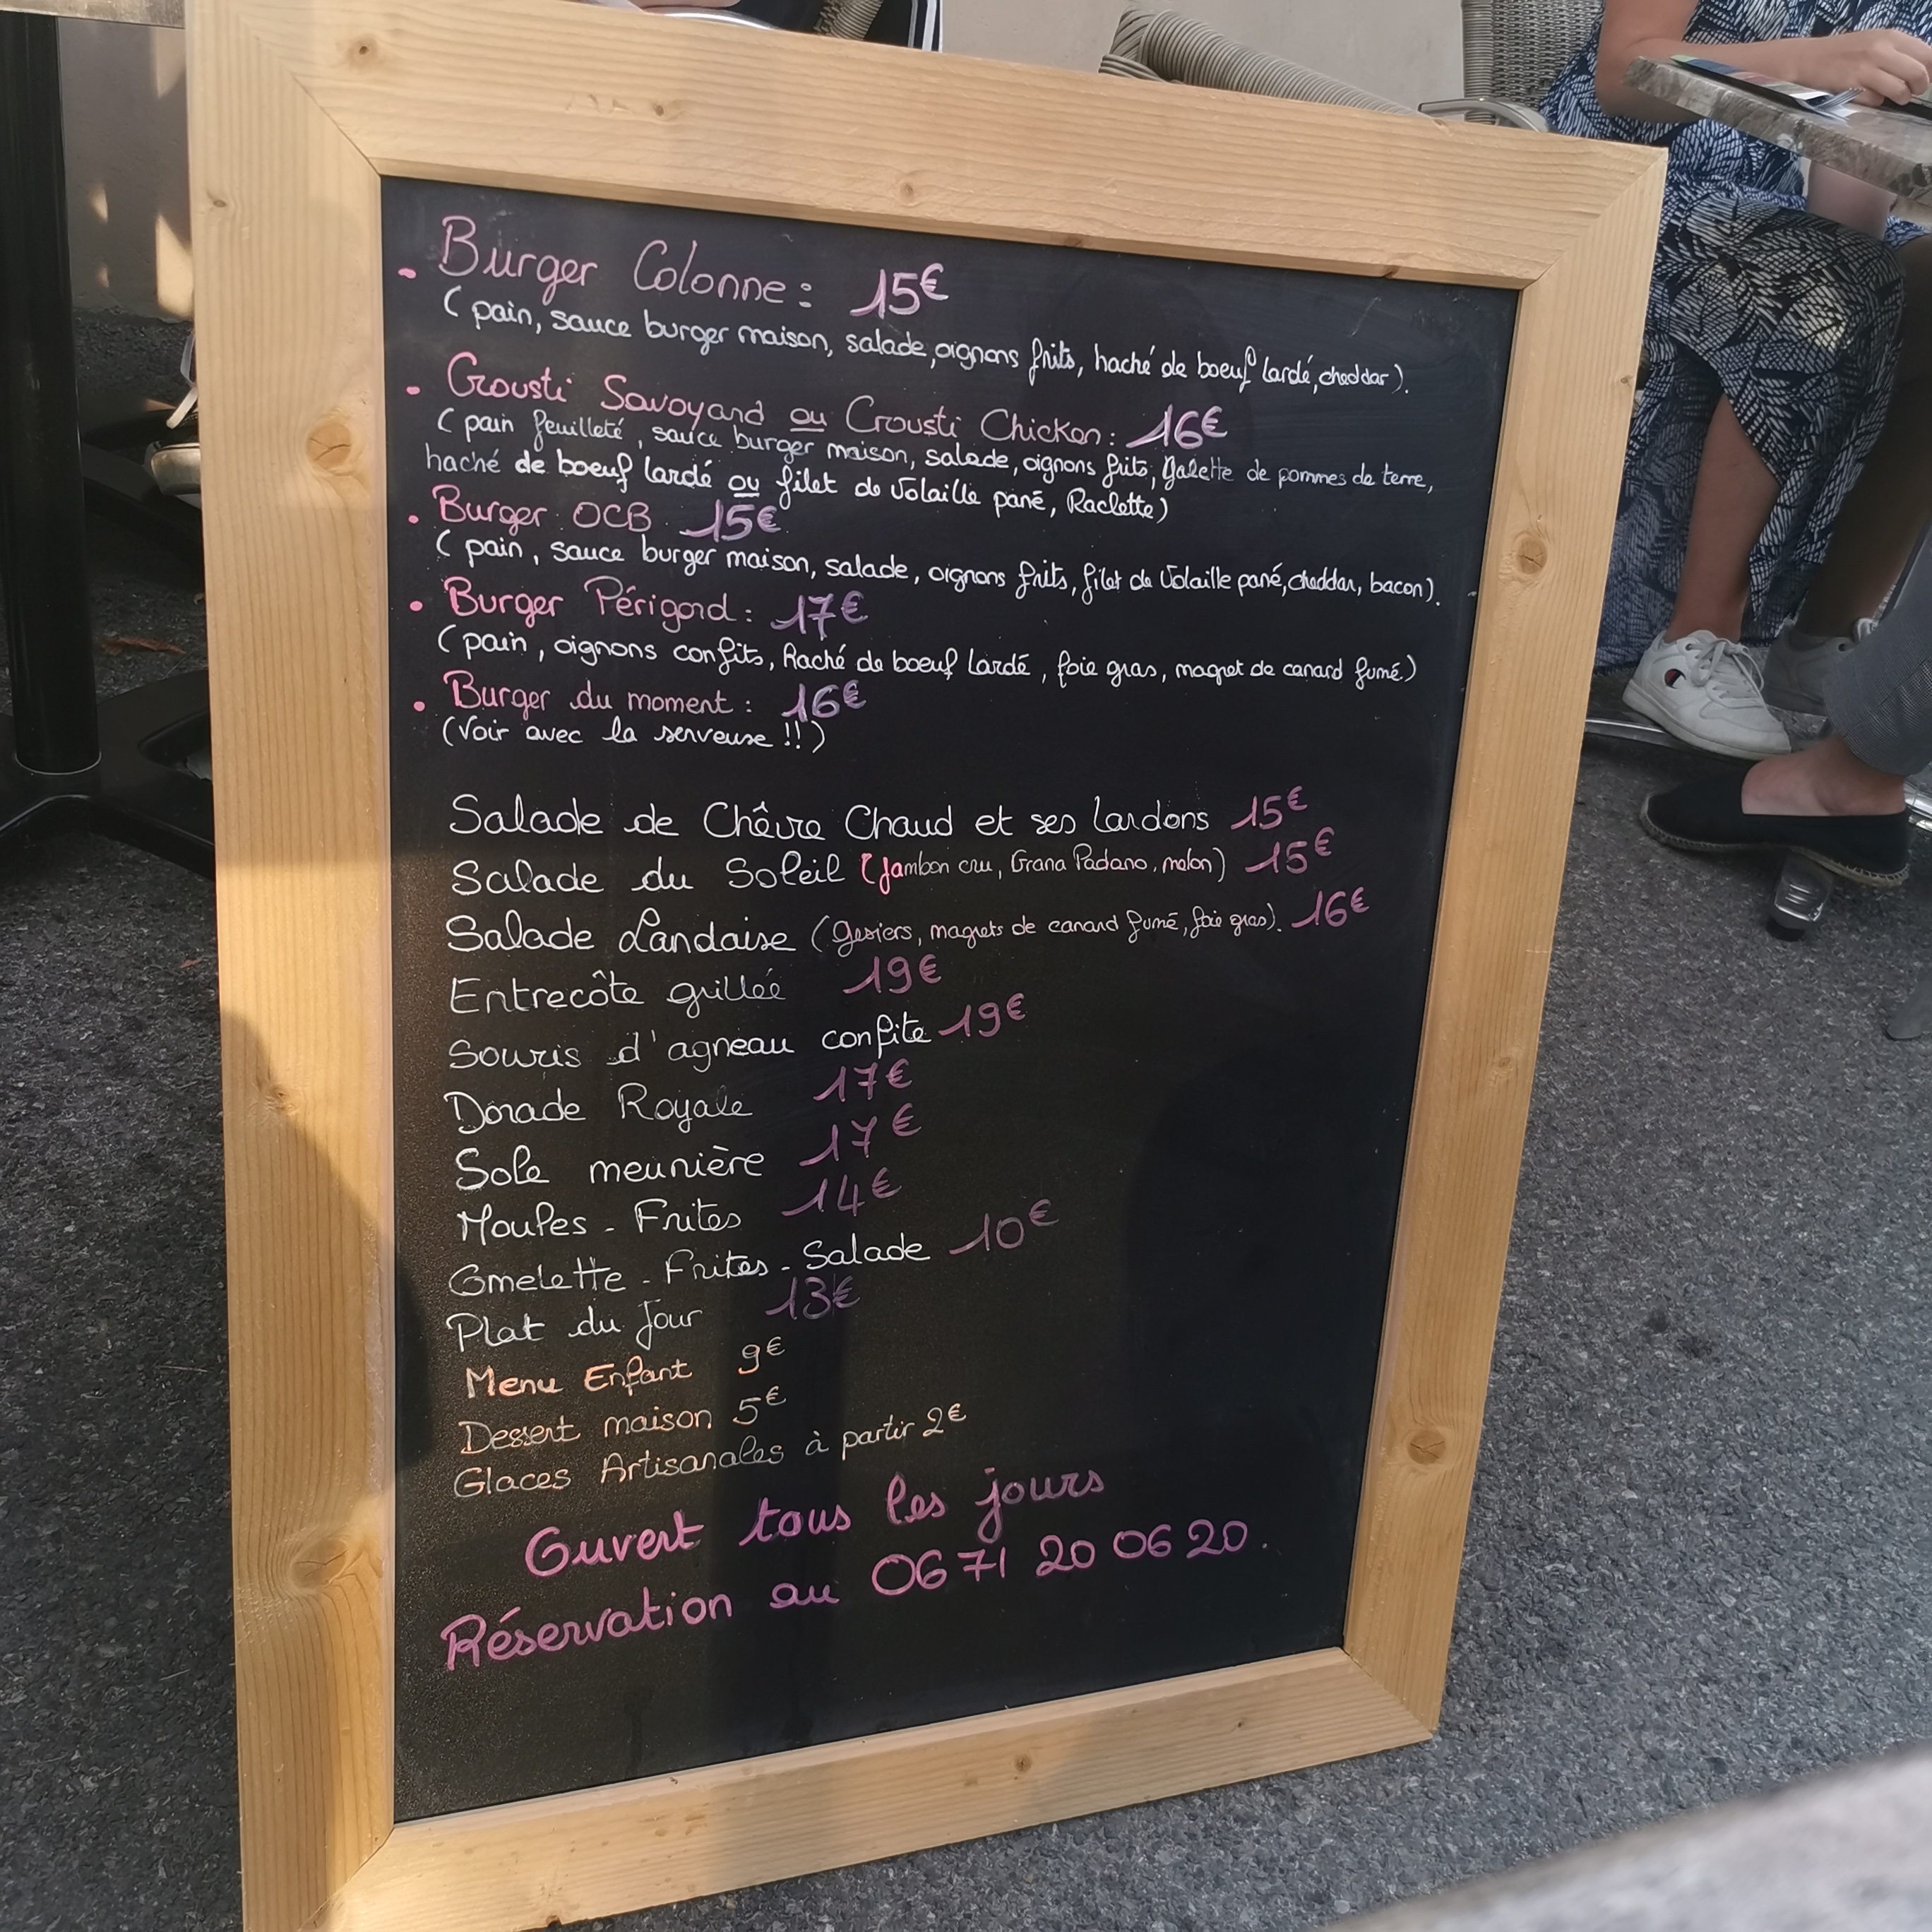 • Burger Colonne : 15€
( pain, sauce burger maison, salade, oignons frits, haché de boeuf lardé, cheddar ).
- Crousti Savoyard ou Crousti Chicken : 16€
( pain feuilleté, sauce burger maison, salade, oignons frits, galette de pommes de terre,
haché de boeuf lardé ou filet de volaille pané, Raclette )
• Burger OCB 15€
( pain, sauce burger maison, salade, oignons frits, filet de volaille pané, cheddar, bacon ).
• Burger Périgord : 17€
( pain, oignons confits, haché de boeuf lardé, foie gras, magret de canard fumé )
• Burger du moment : 16€
( Voir avec la serveuse !! )
Salade de Chêvre Chaud et ses lardons 15€
Salade du Soleil ( Jambon cru, Grana Padano, melon ) 15€
Salade Landaise ( gesiers, magrets de canard fumé, foie gras ). 16€
Entrecôte grillée 19€
Souris d'agneau confite 19€
Dorade Royale 17€
Sole meunière 17€
Moules - Frites 14€
Omelette - Frites - Salade 10€
Plat du jour 13€
Menu Enfant 9€
Dessert maison 5€
Glaces Artisanales à partir 2€
Ouvert tous les jours
Réservation au 06 71 20 06 20.